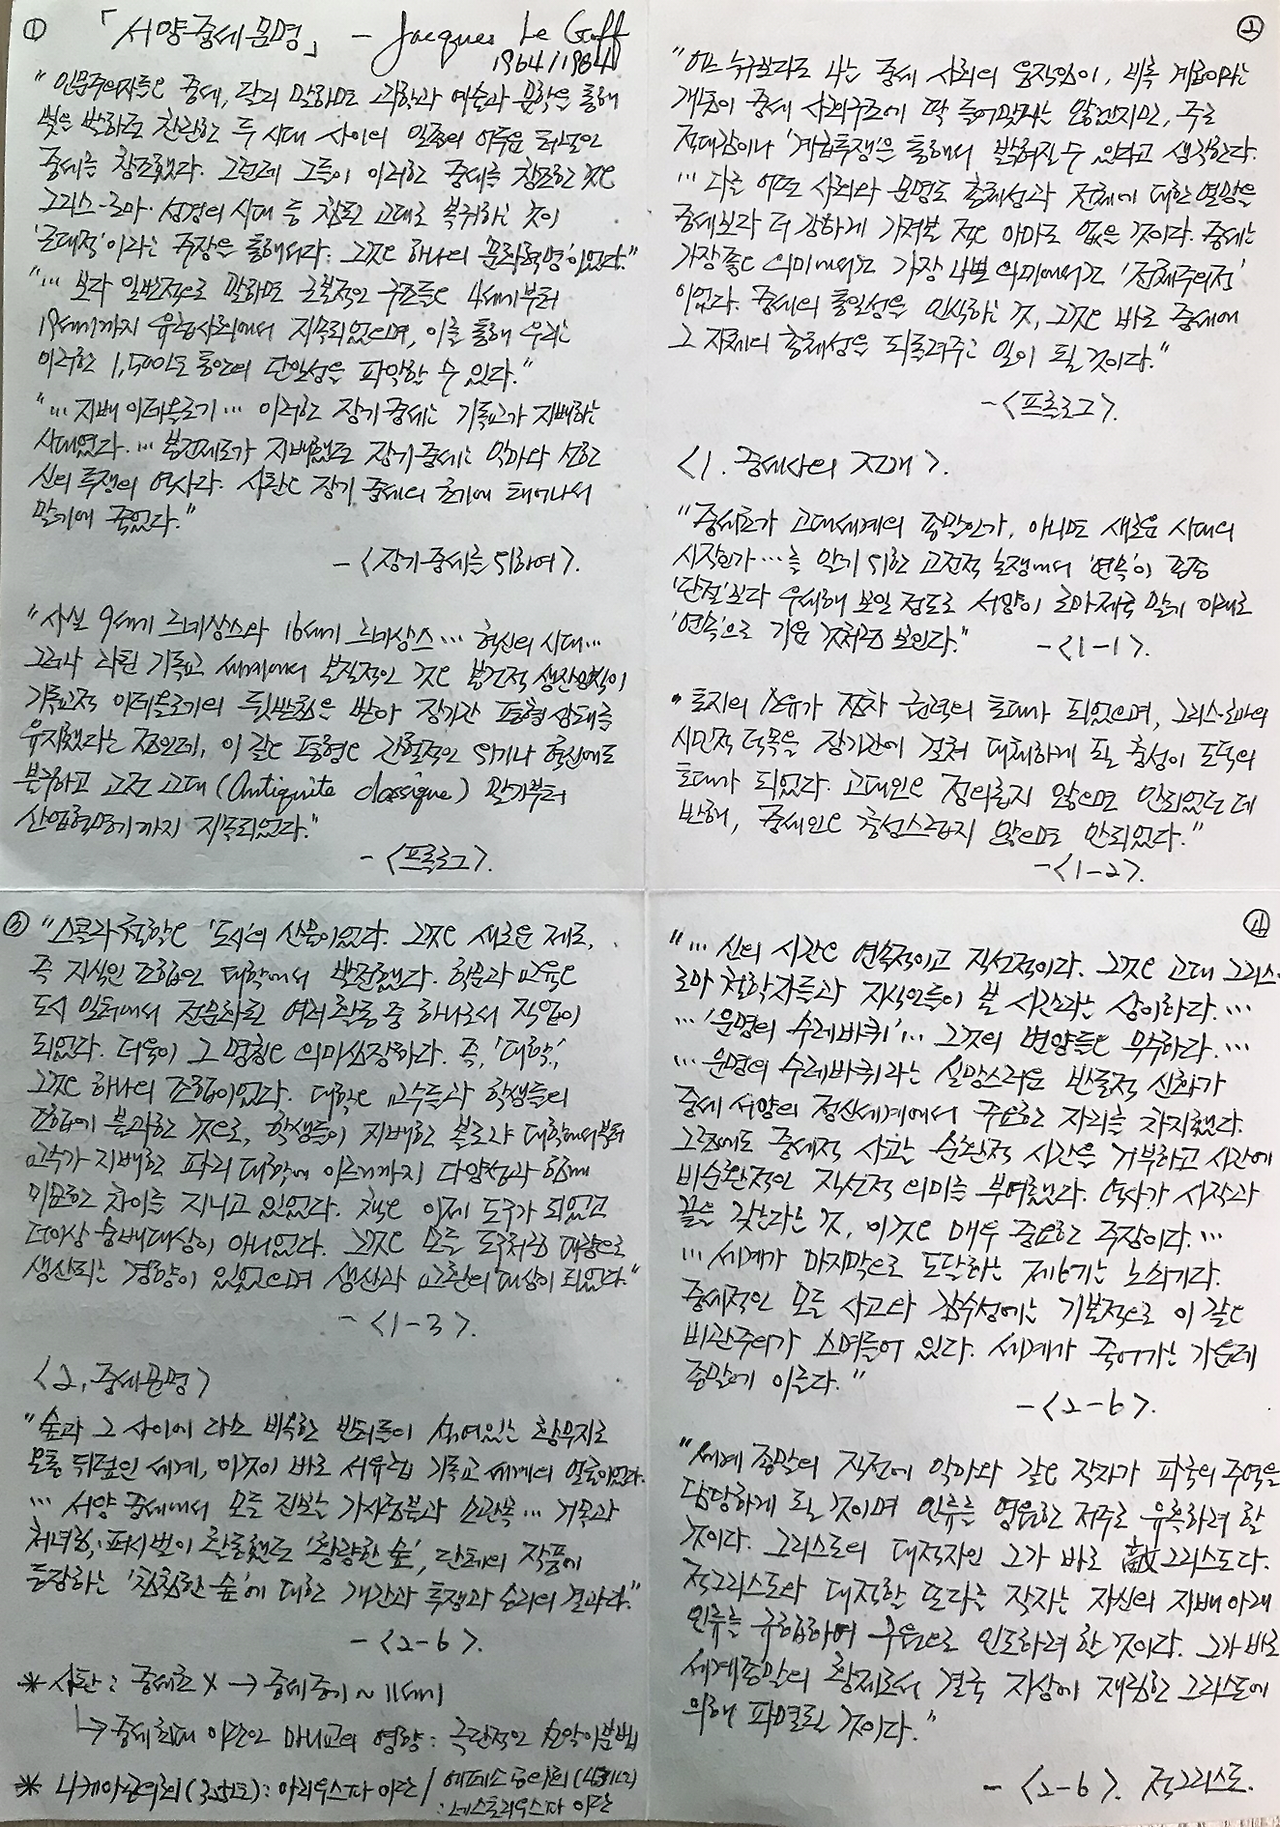 ①
「서양중세문명」 - Jacques Le Goff
1964/1984
"인문주의자들은 중세, 달리 말하면 과학과 예술과 문학을 통해
빛을 발하고 찬란한 두 시대 사이의 일종의 어두운 터널인
중세를 창조했다. 그런데 그들이 이러한 중세를 창조한 것은
그리스-로마·성경의 시대 등 참된 고대로 복귀하는 것이
'근대적'이라는 주장을 통해서다. 그것은 하나의 문화혁명이었다."
"… 보다 일반적으로 말하면 근본적인 구조들은 4세기부터
19세기까지 유럽사회에서 지속되었으며, 이를 통해 우리는
이러한 1,500년 동안의 단일성을 파악할 수 있다."
"… 지배 이데올로기 … 이러한 장기 중세는 기독교가 지배하는
시대였다. … 봉건제도가 지배했던 장기 중세는 악마와 선한
신의 투쟁의 역사다. 사탄은 장기 중세의 초기에 태어나서
말기에 죽었다."
- <장기 중세를 위하여>.
"사실 9세기 르네상스와 16세기 르네상스 … 혁신의 시대 …
그러나 라틴 기독교 세계에서 본질적인 것은 봉건적 생산양식이
기독교적 이데올로기의 뒷받침을 받아 장기간 평형상태를
유지했다는 점인데, 이 같은 평형은 간헐적인 위기나 혁신에도
불구하고 고전 고대 (Antiquite classique) 말기부터
산업혁명기까지 지속되었다."
- <프롤로그>.
②
"어느 누구보다도 나는 중세 사회의 움직임이, 비록 계급이라는
개념이 중세 사회구조에 딱 들어맞지는 않겠지만, 주로
적대감이나 '계급투쟁'을 통해서 밝혀질 수 있다고 생각한다.
… 다른 어떤 사회와 문명도 총체성과 전체에 대한 열망을
중세보다 더 강하게 가져본 적은 아마도 없을 것이다. 중세는
가장 좋은 의미에서건 가장 나쁜 의미에서건 '전체주의적'
이었다. 중세의 통일성을 인식하는 것, 그것은 바로 중세에
그 자체의 총체성을 되돌려주는 일이 될 것이다."
- <프롤로그>.
<1. 중세사의 전개>.
"중세초가 고대세계의 종말인가, 아니면 새로운 시대의
시작인가 … 를 알기 위한 고전적 논쟁에서 '연속'이 종종
'단절'보다 우세해 보일 정도로 서양이 로마제국 말기 이래로
'연속'으로 기운 것처럼 보인다." - <1-1>.
• 토지의 소유가 점차 권력의 토대가 되었으며, 그리스-로마의
시민적 덕목을 장기간에 걸쳐 대체하게 될 충성이 도덕의
토대가 되었다. 고대인은 정의롭지 않으면 안되었던 데
반해, 중세인은 충성스럽지 않으면 안되었다."
- <1-2>.
③ "스콜라 철학은 '도시'의 산물이었다. 그것은 새로운 제도,
즉 지식인 조합인 대학에서 발전했다. 학문과 교육은
도시 일터에서 전문화된 여러 활동 중 하나로서 직업이
되었다. 더욱이 그 명칭은 의미심장하다. 즉, '대학',
그것은 하나의 조합이었다. 대학은 교수들과 학생들의
조합에 불과한 것으로, 학생들이 지배한 볼로냐 대학에서부터
교수가 지배한 파리 대학에 이르기까지 다양성과 함께
미묘한 차이를 지니고 있었다. 책은 이제 도구가 되었고
더이상 숭배대상이 아니었다. 그것은 모든 도구처럼 대량으로
생산되는 경향이 있었으며 생산과 교환의 대상이 되었다."
- <1-3>.
<2. 중세문명>
"숲과 그 사이에 다소 비옥한 빈터들이 섞여있는 황무지로
온통 뒤덮인 세계, 이것이 바로 서유럽 기독교 세계의 얼굴이었다.
… 서양 중세에서 모든 진보는 가시덤불과 소관목 … 거목과
처녀림, 퍼시벌이 활동했던 '황량한 숲', 단테의 작품에
등장하는 '침침한 숲'에 대한 개간과 투쟁과 승리의 결과다."
- <2-6>.
* 사탄: 중세초 X → 중세중기 ~ 11세기
↳ 중세 최대 이단인 마니교의 영향: 극단적인 선악이분법
* 니케아공의회(325년도): 아리우스파 이단 / 에페소 공의회(431년)
: 네스토리우스파 이단
④
"… 신의 시간은 연속적이고 직선적이다. 그것은 고대 그리스-
로마 철학자들과 지식인들이 본 시간과는 상이하다. …
… '운명의 수레바퀴' … 그것의 변양들은 무수하다. …
… 운명의 수레바퀴라는 실망스러운 반동적 신화가
중세 서양의 정신세계에서 주요한 자리를 차지했다.
그럼에도 중세적 사고는 순환적 시간을 거부하고 시간에
비순환적인 직선적 의미를 부여했다. 역사가 시작과
끝을 갖는다는 것, 이것은 매우 중요한 주장이다. …
… 세계가 마지막으로 도달하는 제6기는 노쇠기다.
중세적인 모든 사고와 감수성에는 기본적으로 이 같은
비관주의가 스며들어 있다. 세계가 죽어가는 가운데
종말에 이른다."
- <2-6>.
"세계 종말의 직전에 악마와 같은 작자가 파국의 주역을
담당하게 될 것이며 인류를 영원한 저주로 유혹하려 할
것이다. 그리스도의 대적자인 그가 바로 敵그리스도다.
적그리스도와 대적할 또다른 작자는 자신의 지배 아래
인류를 규합하여 구원으로 인도하려 할 것이다. 그가 바로
세계종말의 황제로서 결국 지상에 재림한 그리스도에
의해 파멸될 것이다."
- <2-6>. 적그리스도.